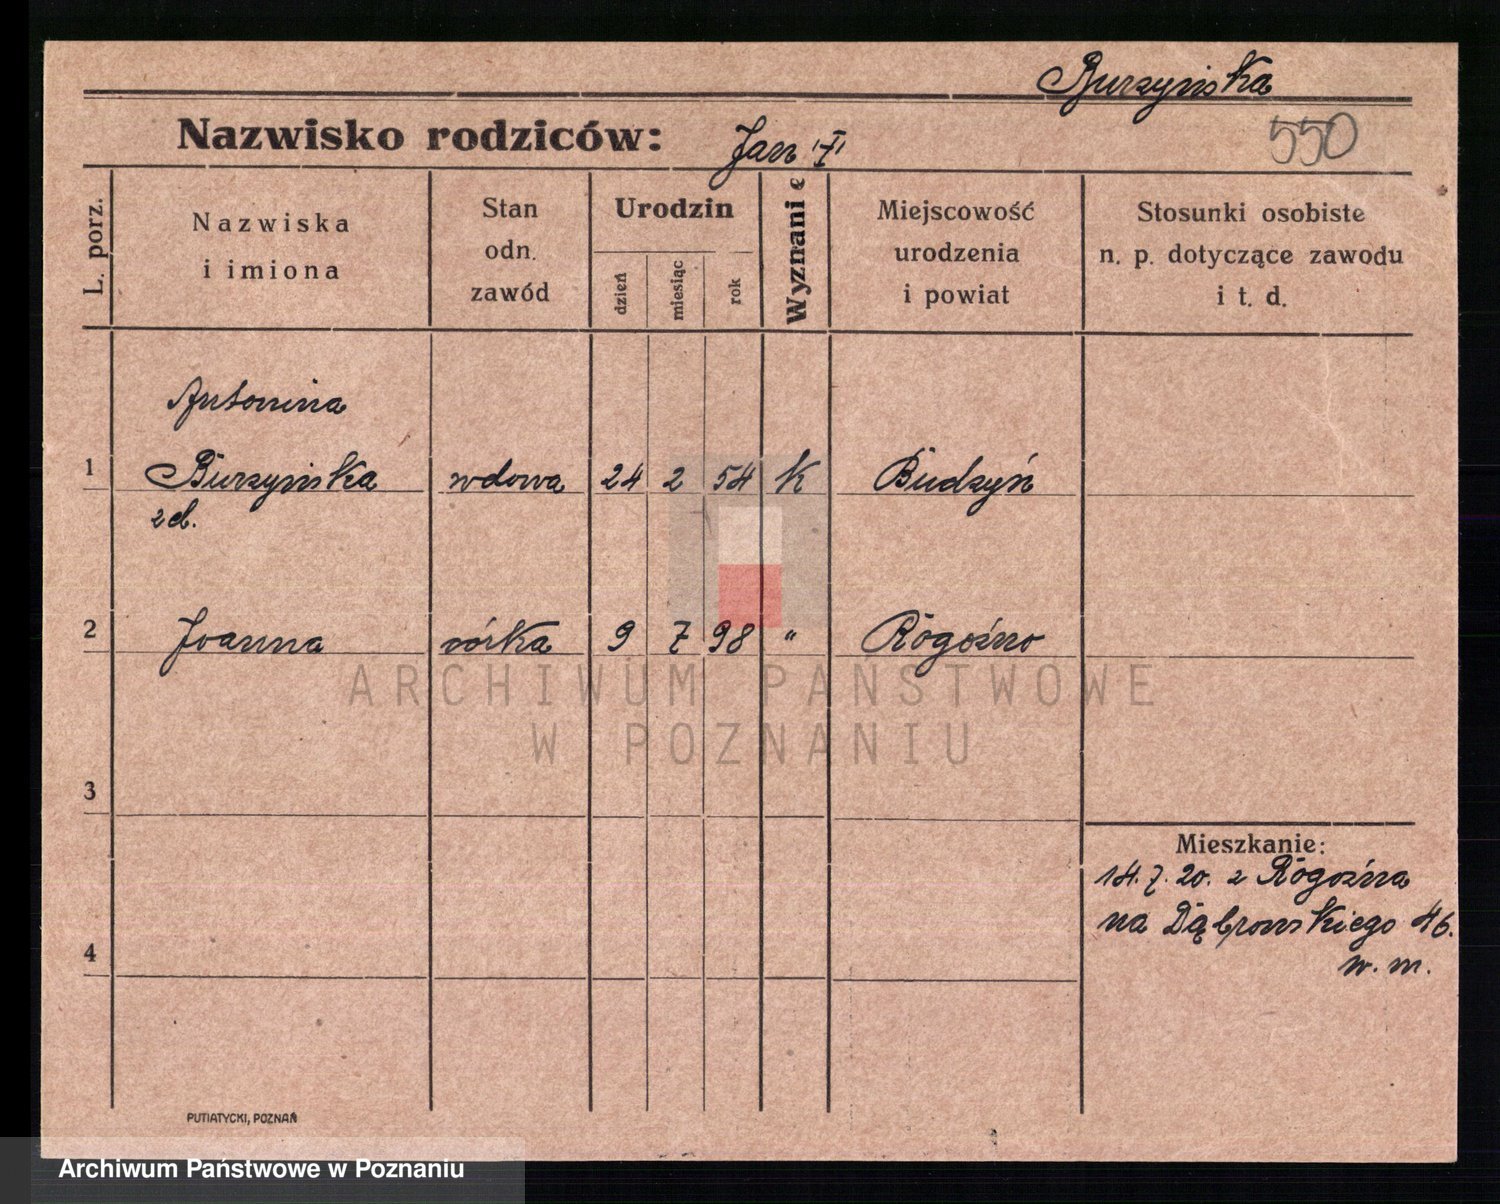 Burzyńska
Nazwisko rodziców: Jan
550
L. porz.
Nazwiska
i imiona
Stan
odn.
zawód
Urodzin
dzień
miesiąc
rok
Wyznanie
Miejscowość
urodzenia
i powiat
Stosunki osobiste
n. p. dotyczące zawodu
i t. d.
Antonina
1 Burzyńska wdowa 24 2 54 K Budzyń
z d.
2 Joanna córka 9 7 98 " Rogoźno
3
4
Mieszkanie:
14.7.20. z Rogoźna
na Dąbrowskiego 46.
w. m.
PUTIATYCKI, POZNAŃ
ARCHIWUM PAŃSTWOWE
W POZNANIU
Archiwum Państwowe w Poznaniu